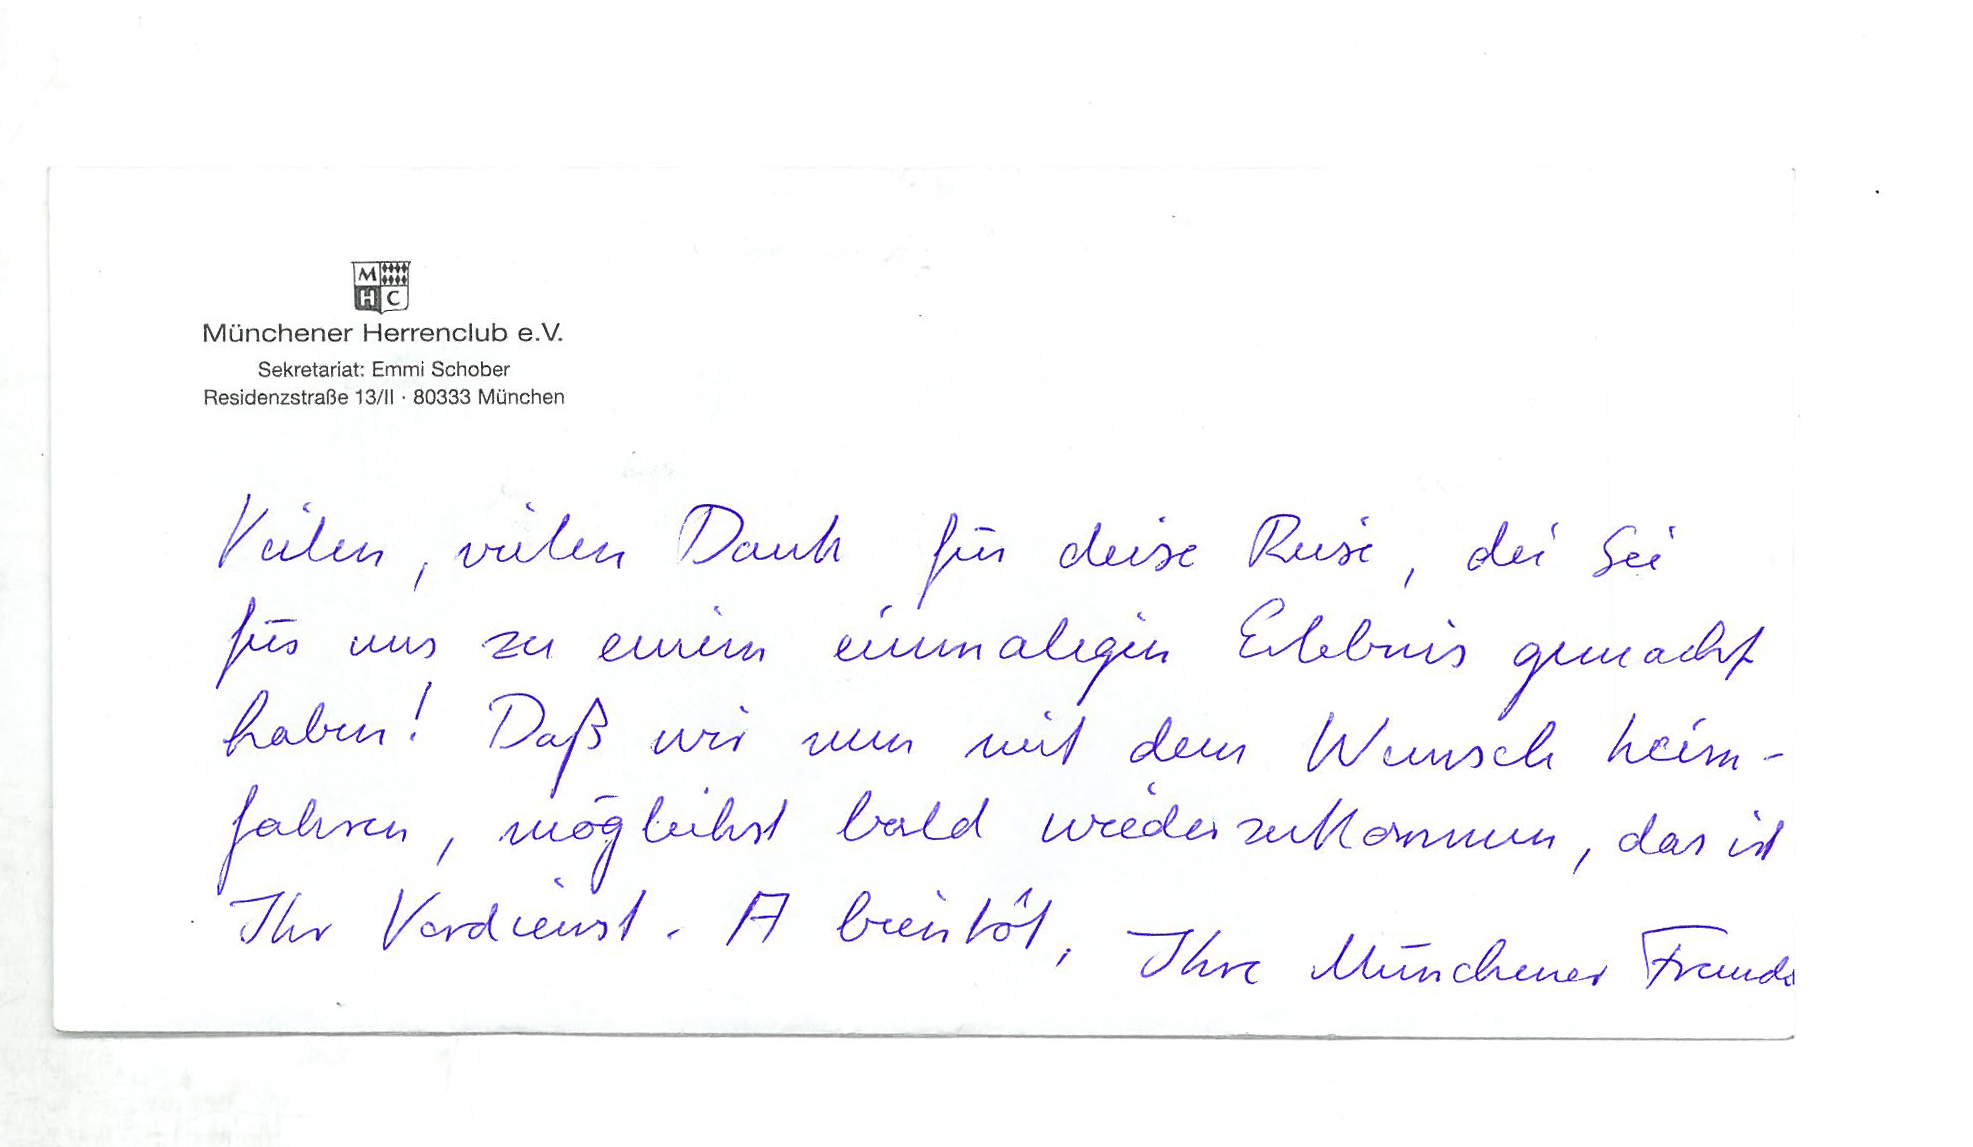 M
H C
Münchener Herrenclub e.V.
Sekretariat: Emmi Schober
Residenzstraße 13/II · 80333 München
Vielen, vielen Dank für diese Reise, die Sie
für uns zu einem einmaligen Erlebnis gemacht
haben! Daß wir nun mit dem Wunsch heim-
fahren, möglichst bald wiederzukommen, das ist
Ihr Verdienst. A bientôt, Ihre Münchener Freunde